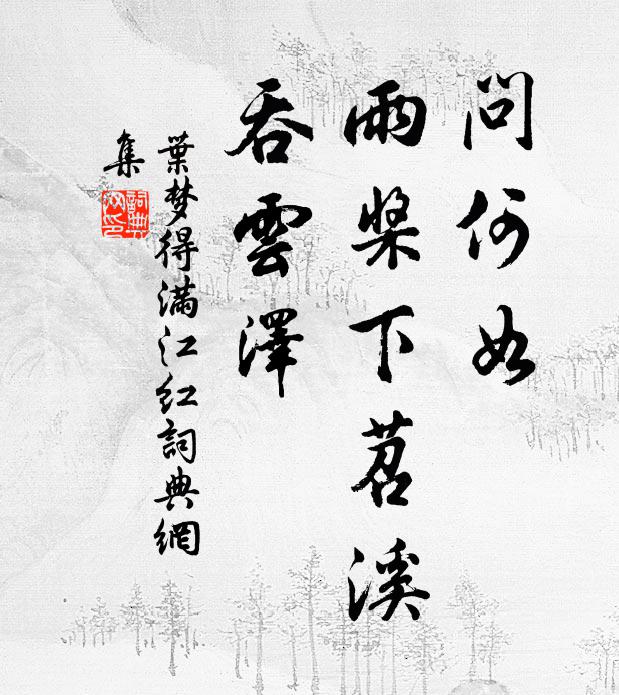 問何如
兩槳下苕溪
吞雲澤
葉梦得滿江红詞典網
集
詞典网印